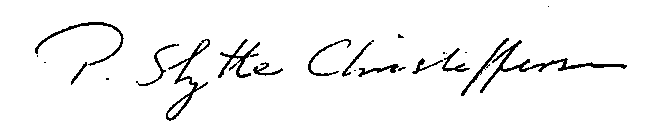 P. Slytte Christofferson